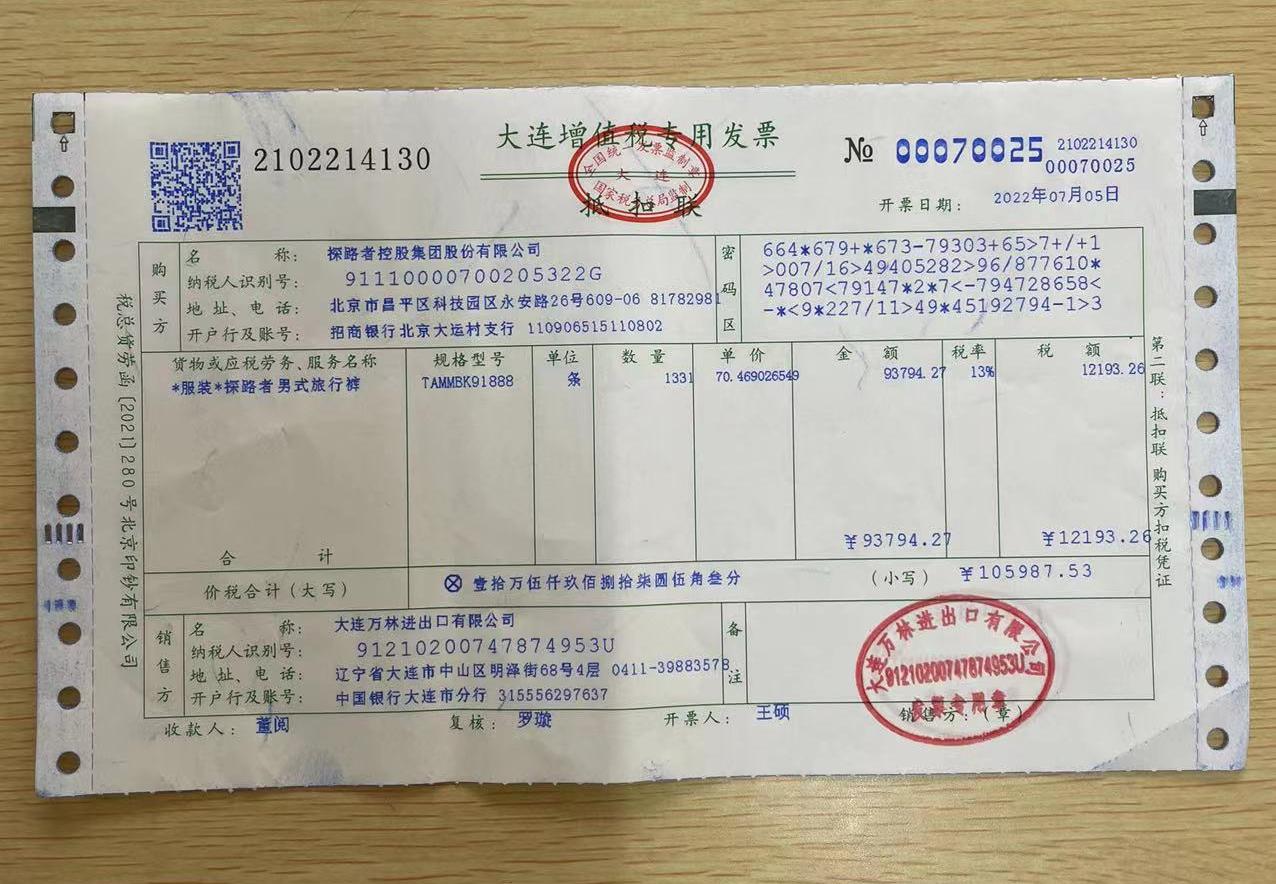 大连增值税专用发票
2102214130
№ 00070025
2102214130
00070025
全国统一发票监制章
大连
国家税务总局监制
抵扣联
开票日期: 2022年07月05日
购买方
名称: 探路者控股集团股份有限公司
纳税人识别号: 91110000700205322G
地址、电话: 北京市昌平区科技园区永安路26号609-06 81782981
开户行及账号: 招商银行北京大运村支行 110906515110802
密码区
664*679+*673-79303+65>7+/+1
>007/16>49405282>96/877610*
47807<79147*2*7<-794728658<
-*<9*227/11>49*45192794-1>3
货物或应税劳务、服务名称 规格型号 单位 数量 单价 金额 税率 税额
*服装*探路者男式旅行裤 TAMMBK91888 条 1331 70.469026549 93794.27 13% 12193.26
合计 ¥93794.27 ¥12193.26
价税合计(大写) ⊗壹拾万伍仟玖佰捌拾柒圆伍角叁分 (小写) ¥105987.53
销售方
名称: 大连万林进出口有限公司
纳税人识别号: 91210200747874953U
地址、电话: 辽宁省大连市中山区明泽街68号4层 0411-39883578
开户行及账号: 中国银行大连市分行 315556297637
备注
收款人: 董阅 复核: 罗璇 开票人: 王硕 销售方:(章)
大连万林进出口有限公司
91210200747874953U
发票专用章
税总货劳函[2021]280号北京印钞有限公司
第二联:抵扣联 购买方扣税凭证